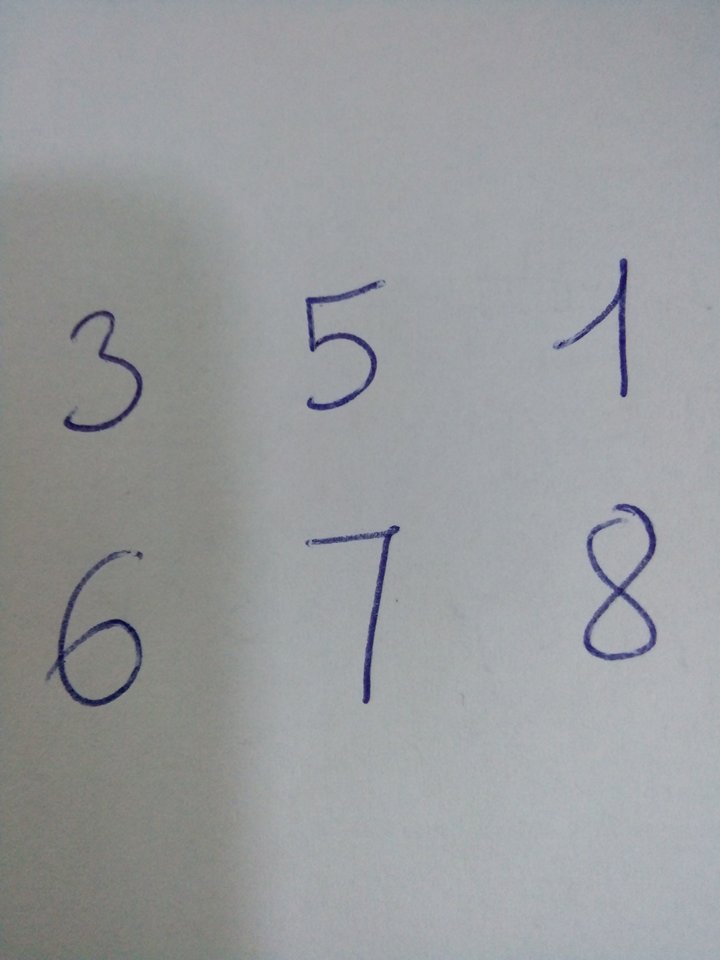 3 5 1
6 7 8